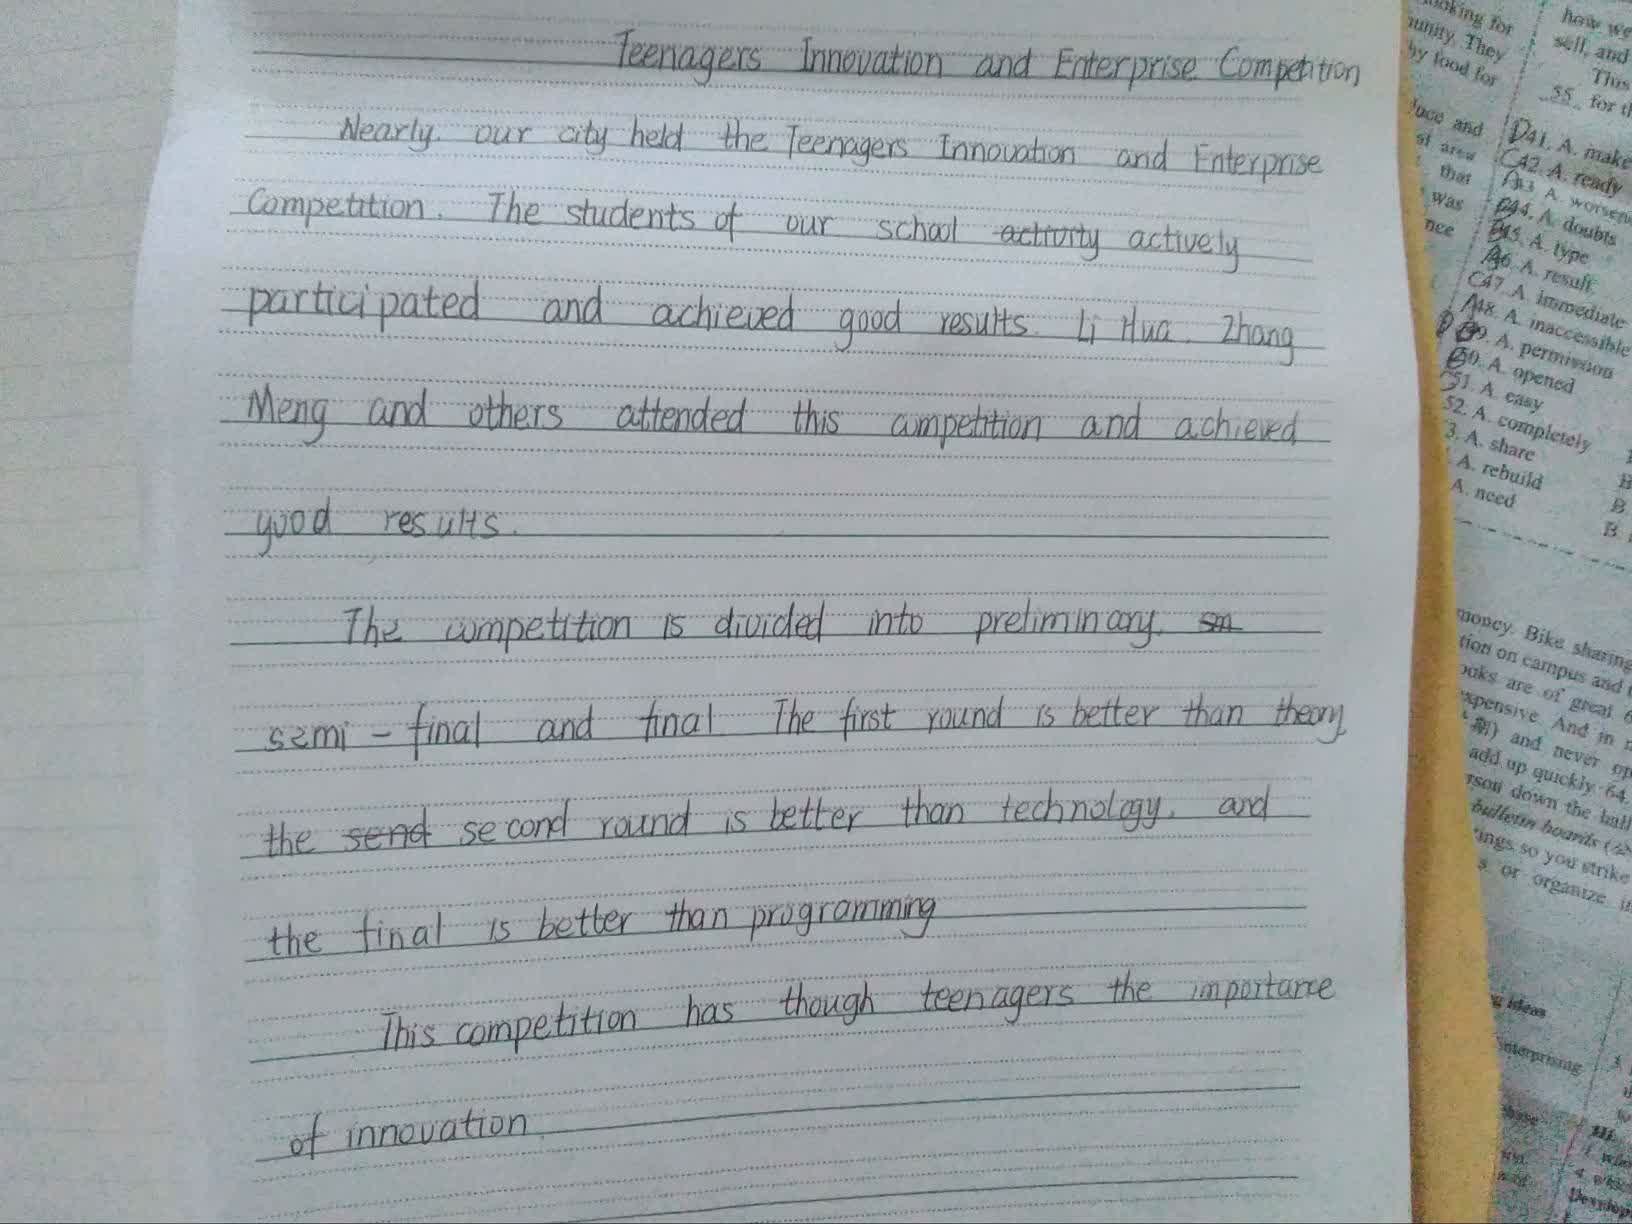 Teenagers Innovation and Enterprise Competition
Nearly. our city held the Teenagers Innovation and Enterprise
Competition. The students of our school activity actively
participated and achieved good results. Li Hua. Zhang
Meng and others attended this competition and achieved
good results.
The competition is divided into preliminary. sm
semi-final and final The first round is better than theory,
the send second round is better than technology. and
the final is better than programming
This competition has though teenagers the importance
of innovation
oking for
unity. They
by food for
uce and
that
was
nce
how we
sell, and
This
55. for th
D41. A. make
C42. A. ready
A43. A. worsen
44. A. doubts
45. A. type
A46. A. result
C47. A. immediate
A48. A. inaccessible
49. A. permission
50. A. opened
C51. A. easy
52. A. completely
3. A. share
A. rebuild
A. need
B
B
B
money. Bike sharing
tion on campus and
ooks are of great
expensive. And in
期) and never op
add up quickly. 64.
rson down the hall
bulletin boards
ings, so you strike
s or organize
g ideas
Enterprising